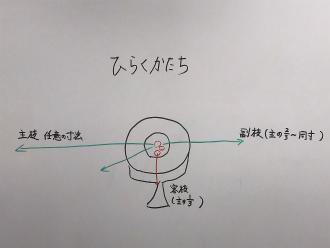 ひらくかたち
主枝 任意の寸法
副枝(主の2/3〜同寸)
客枝
(主の1/3)